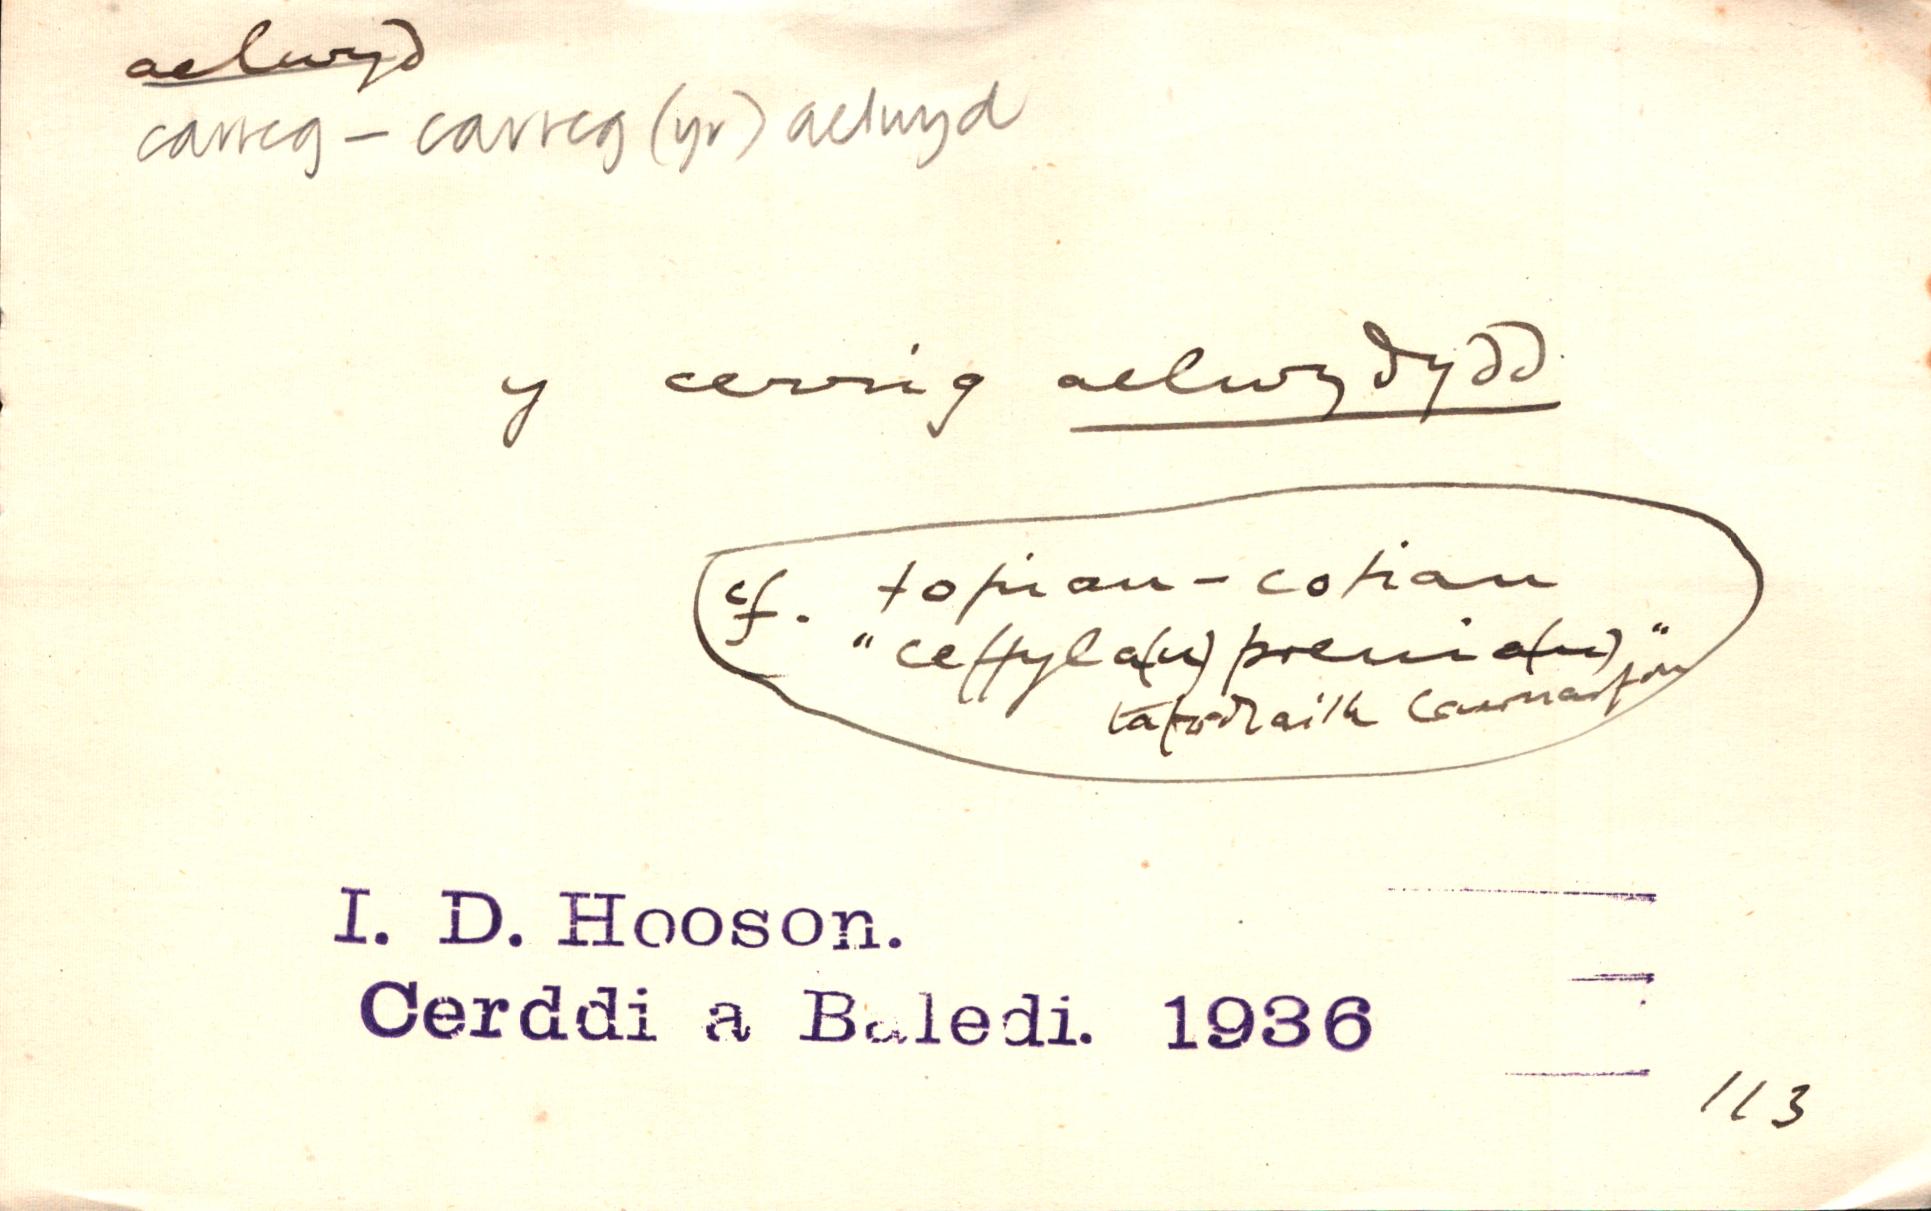 aelwyd
carreg – carreg (yr) aelwyd
y cerrig aelwydydd
cf. topiau-cotiau
"ceffyla(u) prennia(u)"
tafodiaith Caernarfon
I. D. Hooson.
Cerddi a Baledi. 1936
113